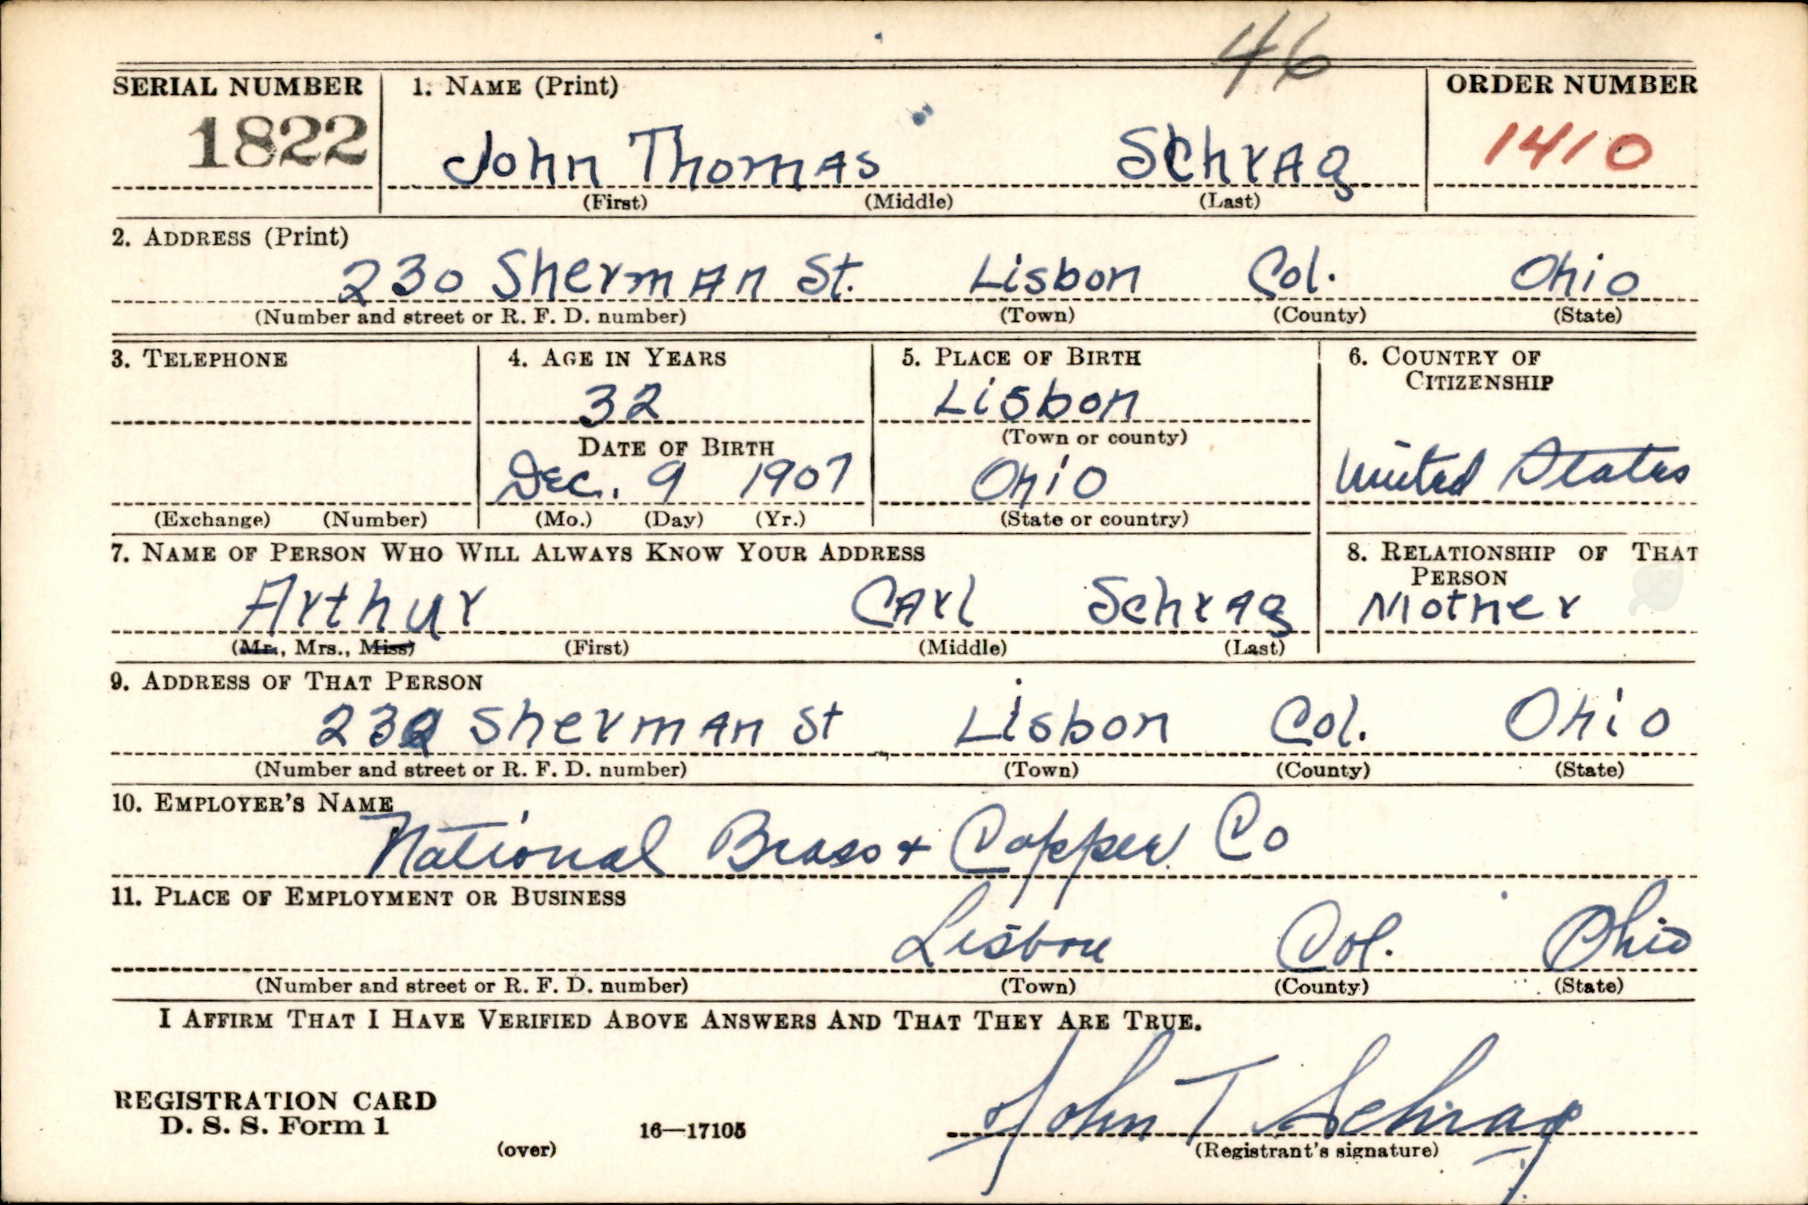 46
SERIAL NUMBER 1. NAME (Print) ORDER NUMBER
1822 John Thomas Schrag 1410
(First) (Middle) (Last)
2. ADDRESS (Print)
230 Sherman St. Lisbon Col. Ohio
(Number and street or R. F. D. number) (Town) (County) (State)
3. TELEPHONE 4. AGE IN YEARS 5. PLACE OF BIRTH 6. COUNTRY OF
CITIZENSHIP
32 Lisbon
DATE OF BIRTH (Town or county)
Dec. 9 1907 Ohio United States
(Exchange) (Number) (Mo.) (Day) (Yr.) (State or country)
7. NAME OF PERSON WHO WILL ALWAYS KNOW YOUR ADDRESS 8. RELATIONSHIP OF THAT
PERSON
Arthur Carl Schrag Mother
(Mr., Mrs., Miss) (First) (Middle) (Last)
9. ADDRESS OF THAT PERSON
230 Sherman St Lisbon Col. Ohio
(Number and street or R. F. D. number) (Town) (County) (State)
10. EMPLOYER'S NAME
National Brass + Copper Co
11. PLACE OF EMPLOYMENT OR BUSINESS
Lisbon Col. Ohio
(Number and street or R. F. D. number) (Town) (County) (State)
I AFFIRM THAT I HAVE VERIFIED ABOVE ANSWERS AND THAT THEY ARE TRUE.
REGISTRATION CARD
D. S. S. Form 1 John T Schrag
(over) 16—17105 (Registrant's signature)